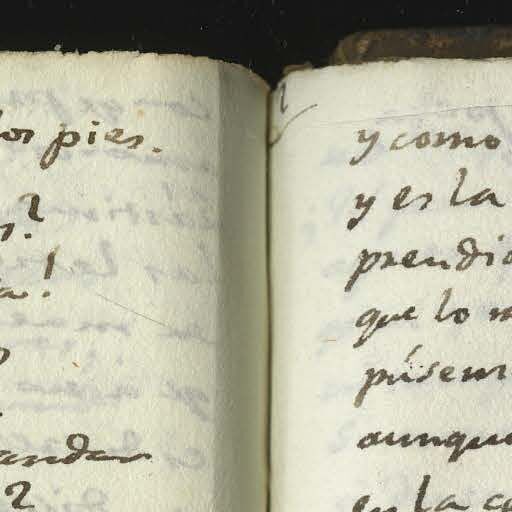 los pies.
s?
a!
andar
?
y como
y es la
prendio
que lo
púseme
aunque
en la co